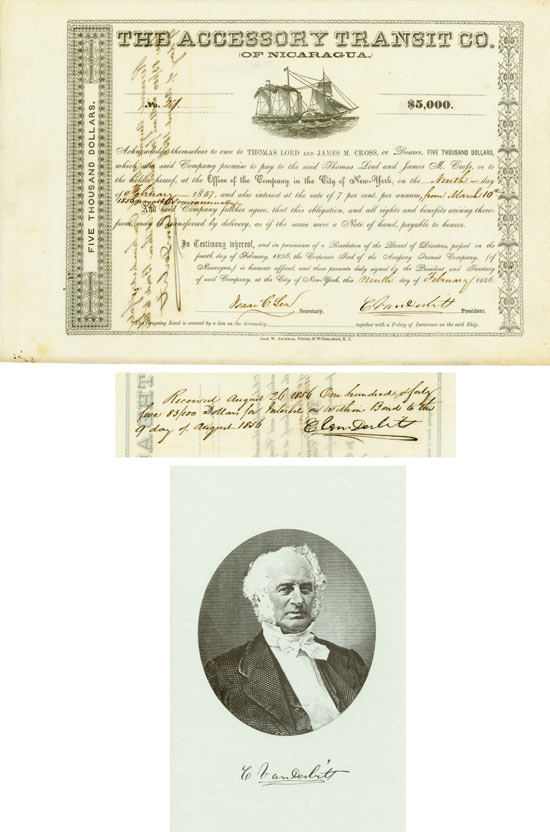 THE ACCESSORY TRANSIT CO.
(OF NICARAGUA.)
No. 27.
$5,000.
FIVE THOUSAND DOLLARS.
Acknowledge themselves to owe to THOMAS LORD AND JAMES M. CROSS, or Bearer, FIVE THOUSAND DOLLARS,
which the said Company promise to pay to the said Thomas Lord and James M. Cross, or to
the holder hereof, at the Office of the Company in the City of New-York, on the Ninth day
of February 1857, and also interest at the rate of 7 per cent. per annum, from March 10th
1856 payable semi annually
And said Company further agree, that this obligation, and all rights and benefits arising there-
from may be transferred by delivery, as if the same were a Note of hand, payable to bearer.
In Testimony whereof, and in pursuance of a Resolution of the Board of Directors, passed on the
fourth day of February, 1856, the Corporate Seal of the Accessory Transit Company, (of
Nicaragua,) is hereunto affixed, and these presents duly signed by the President and Secretary
of said Company, at the City of New-York this Ninth day of February 1856.
Isaac C Lea Secretary. C Vanderbilt President.
The foregoing Bond is secured by a lien on the Steamship together with a Policy of Insurance on the said Ship.
Received August 26, 1856 One hundred & forty
five 83/100 Dollars for Interest on within Bond to the
9 day of August 1856
C Vanderbilt
C Vanderbilt